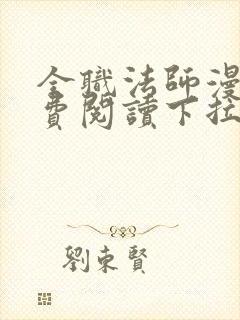 全職法師漫
費閱讀下拉
劉東賢